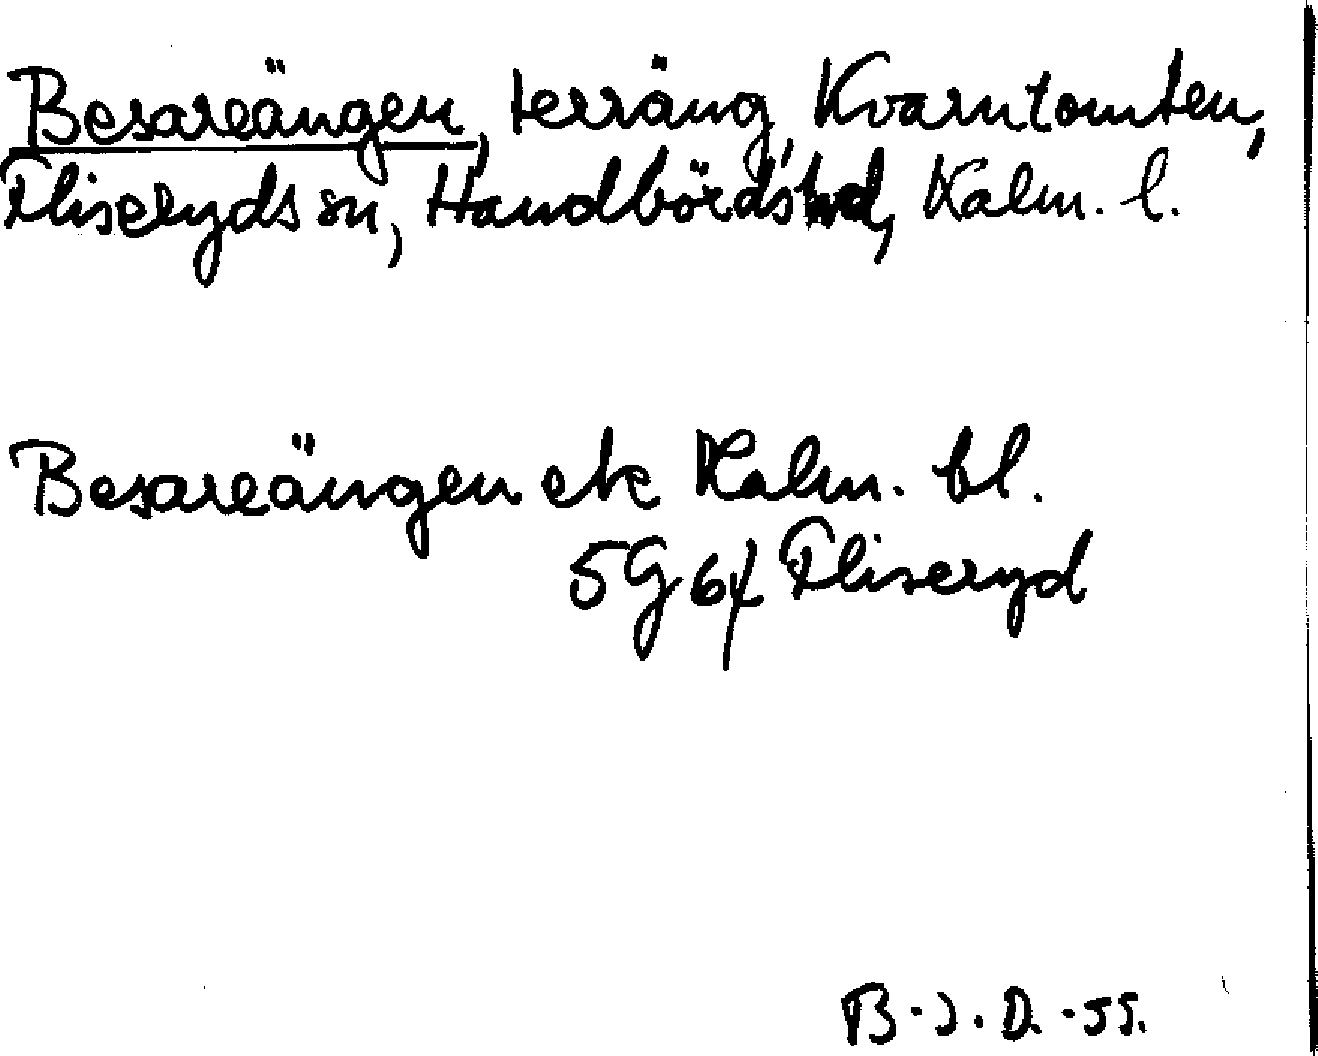 Besareängen, terräng, Kvarntomten,
Fliseryds sn, Handbörds hd, Kalm. l.
Besareängen ek Kalm. bl.
5G 6f Fliseryd
B-J. D. -55.